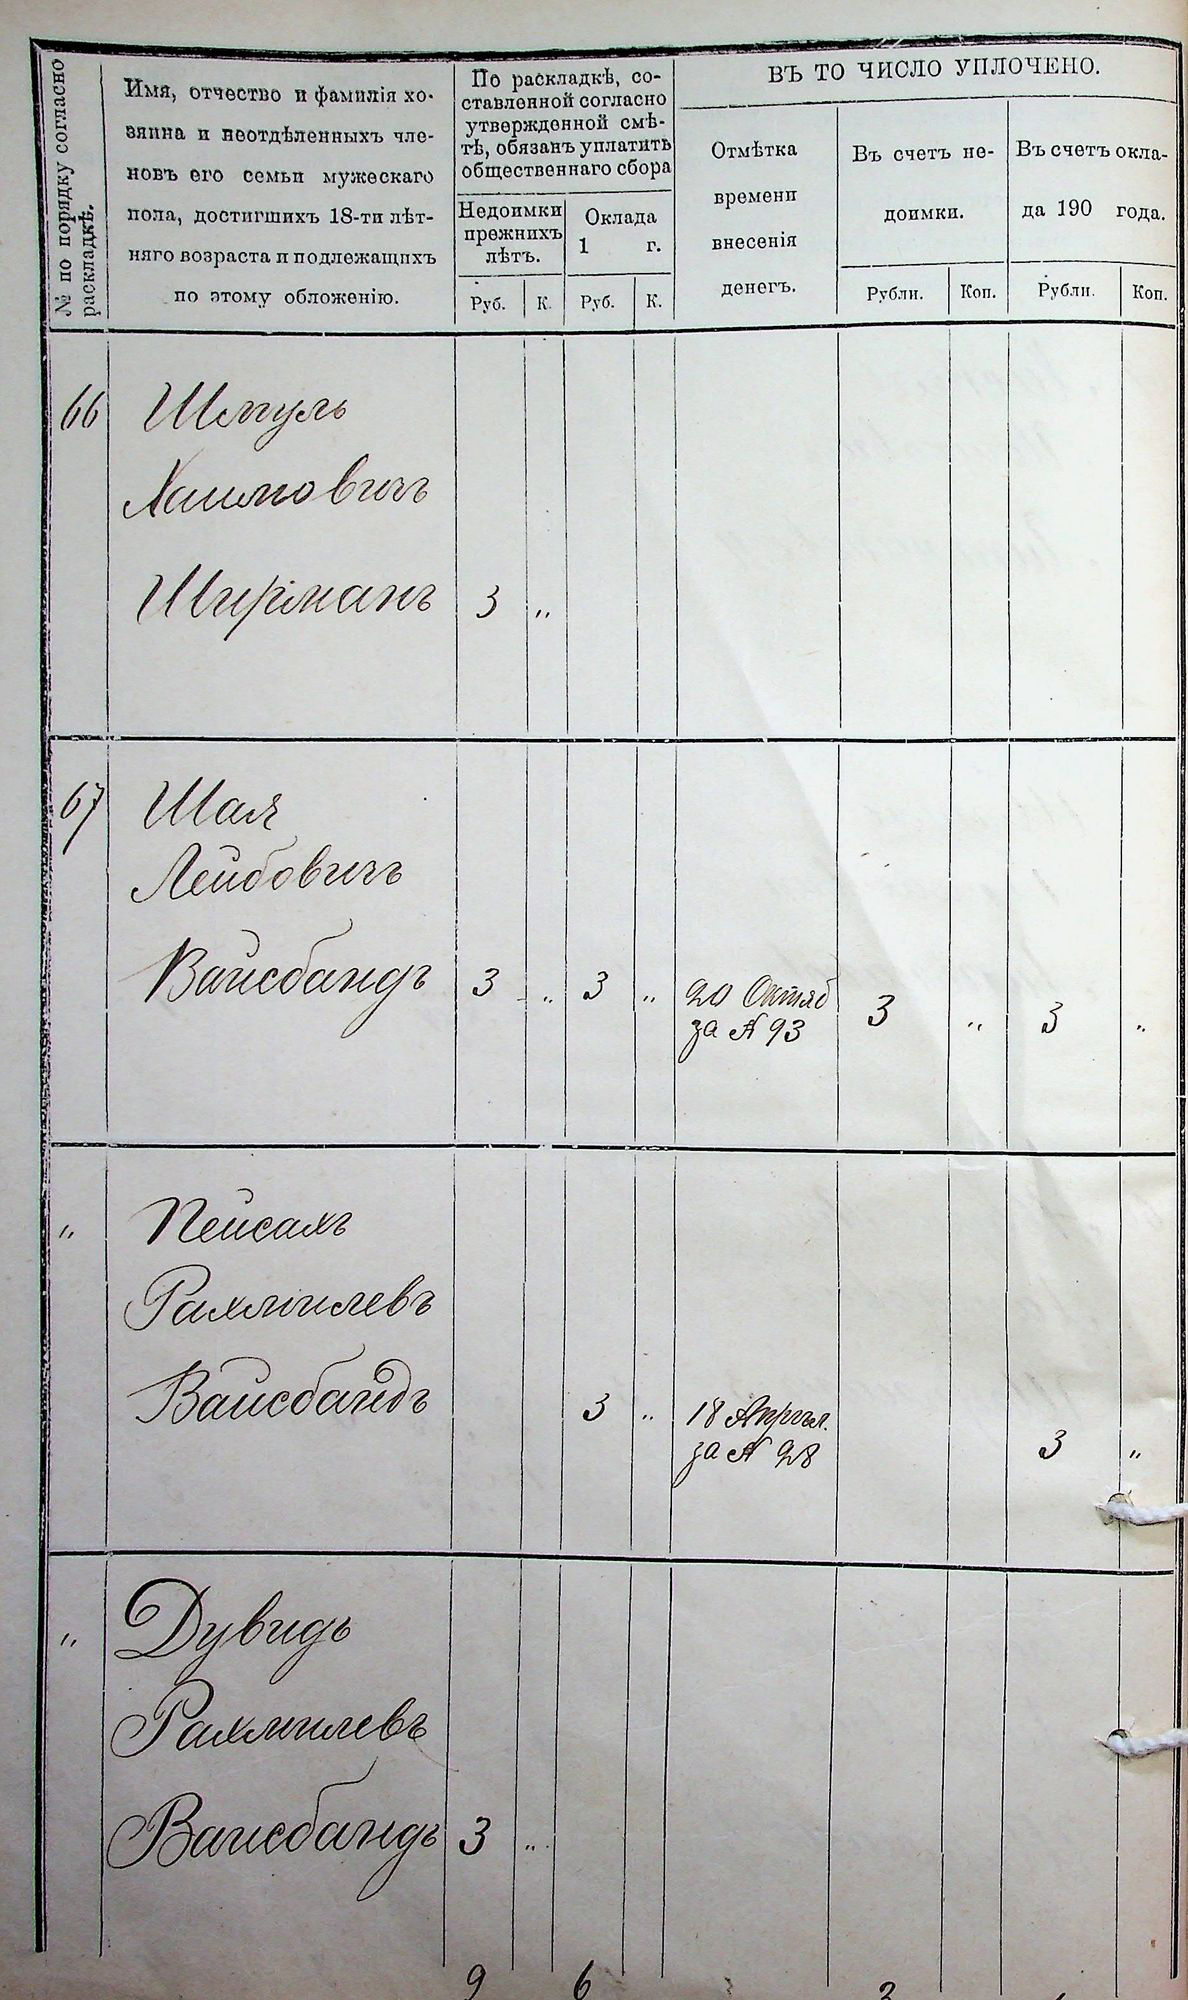 № по порядку согласно
раскладкѣ.
Имя, отчество и фамилія хо-
зяина и неотдѣленныхъ чле-
новъ его семьи мужескаго
пола, достигшихъ 18-ти лѣт-
няго возраста и подлежащихъ
по этому обложенію.
По раскладкѣ, со-
ставленной согласно
утвержденной смѣ-
тѣ, обязанъ уплатить
общественнаго сбора
Недоимки
прежнихъ
лѣтъ.
Оклада
1 г.
Руб. К. Руб. К.
ВЪ ТО ЧИСЛО УПЛОЧЕНО.
Отмѣтка
времени
внесенія
денегъ.
Въ счетъ не-
доимки.
Въ счетъ окла-
да 190 года.
Рубли. Коп. Рубли. Коп.
66 Шмуль
Хаимовичъ
Ширманъ 3 „
67 Шая
Лейбовичъ
Вайсбандъ 3 „ 3 „ 20 Октяб 3 „ 3 „
за № 93
„ Пейсахъ
Рахмилевъ
Вайсбандъ 3 „ 18 Апрѣл. 3 „
за № 28
„ Дувидъ
Рахмилевъ
Вайсбандъ 3 „
9 6 3